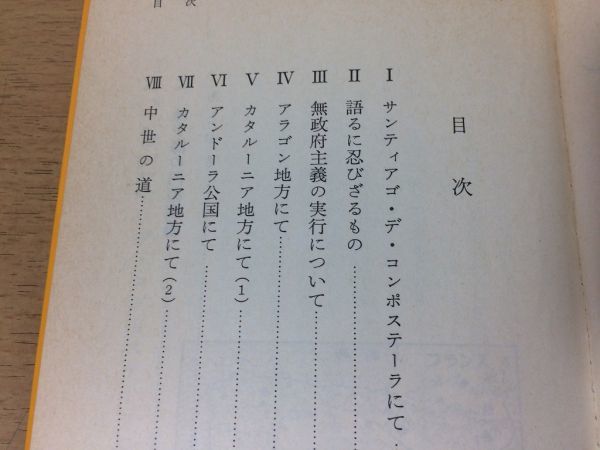 目次
目次
I サンティアゴ・デ・コンポステーラにて
II 語るに忍びざるもの
III 無政府主義の実行について
IV アラゴン地方にて
V カタルーニア地方にて(1)
VI アンドーラ公国にて
VII カタルーニア地方にて(2)
VIII 中世の道